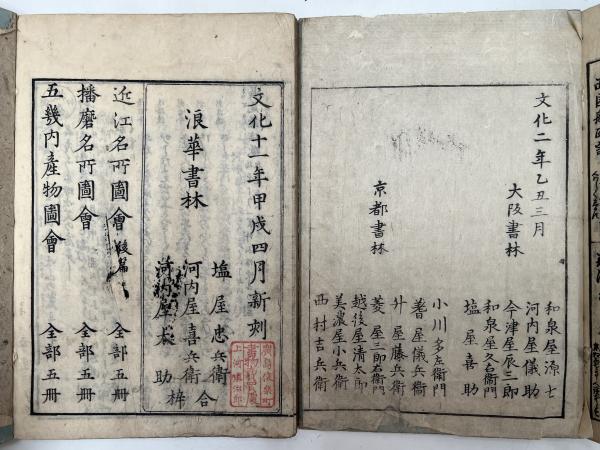 文化二年乙丑三月
大阪書林
和泉屋源七
河内屋儀助
今津屋辰三郎
和泉屋久右衛門
塩屋喜助
京都書林
小川多左衛門
蓍屋儀兵衛
升屋藤兵衛
菱屋三郎右衛門
越後屋清太郎
美濃屋小兵衛
西村吉兵衛
文化十一年甲戌四月新刻
浪華書林
塩屋忠兵衛
河内屋喜兵衛
河内屋太助
合梓
近江名所圖會 後篇 全部五冊
播磨名所圖會 全部五冊
五畿内産物圖會 全部五冊